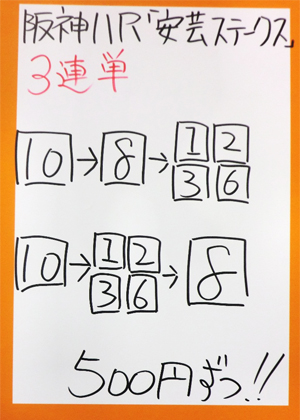 阪神11R「安芸ステークス」
3連単
10→8→1 2 3 6
10→1 2 3 6→8
500円ずつ!!